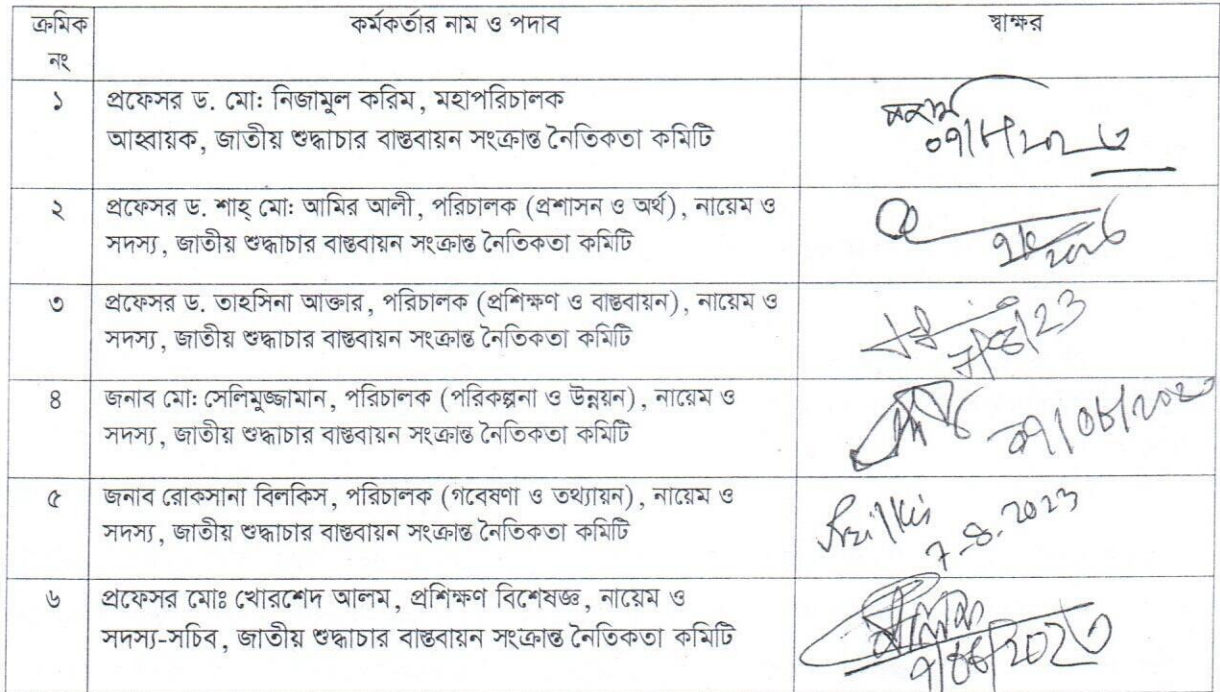 ক্রমিক নং কর্মকর্তার নাম ও পদাব স্বাক্ষর
১ প্রফেসর ড. মো: নিজামুল করিম, মহাপরিচালক
আহবায়ক, জাতীয় শুদ্ধাচার বাস্তবায়ন সংক্রান্ত নৈতিকতা কমিটি
০৭/৮/২০২৩
২ প্রফেসর ড. শাহ্ মো: আমির আলী, পরিচালক (প্রশাসন ও অর্থ), নায়েম ও
সদস্য, জাতীয় শুদ্ধাচার বাস্তবায়ন সংক্রান্ত নৈতিকতা কমিটি
৩ প্রফেসর ড. তাহসিনা আক্তার, পরিচালক (প্রশিক্ষণ ও বাস্তবায়ন), নায়েম ও
সদস্য, জাতীয় শুদ্ধাচার বাস্তবায়ন সংক্রান্ত নৈতিকতা কমিটি
৪ জনাব মো: সেলিমুজ্জামান, পরিচালক (পরিকল্পনা ও উন্নয়ন), নায়েম ও
সদস্য, জাতীয় শুদ্ধাচার বাস্তবায়ন সংক্রান্ত নৈতিকতা কমিটি
৫ জনাব রোকসানা বিলকিস, পরিচালক (গবেষণা ও তথ্যায়ন), নায়েম ও
সদস্য, জাতীয় শুদ্ধাচার বাস্তবায়ন সংক্রান্ত নৈতিকতা কমিটি
7.8.2023
৬ প্রফেসর মোঃ খোরশেদ আলম, প্রশিক্ষণ বিশেষজ্ঞ, নায়েম ও
সদস্য-সচিব, জাতীয় শুদ্ধাচার বাস্তবায়ন সংক্রান্ত নৈতিকতা কমিটি